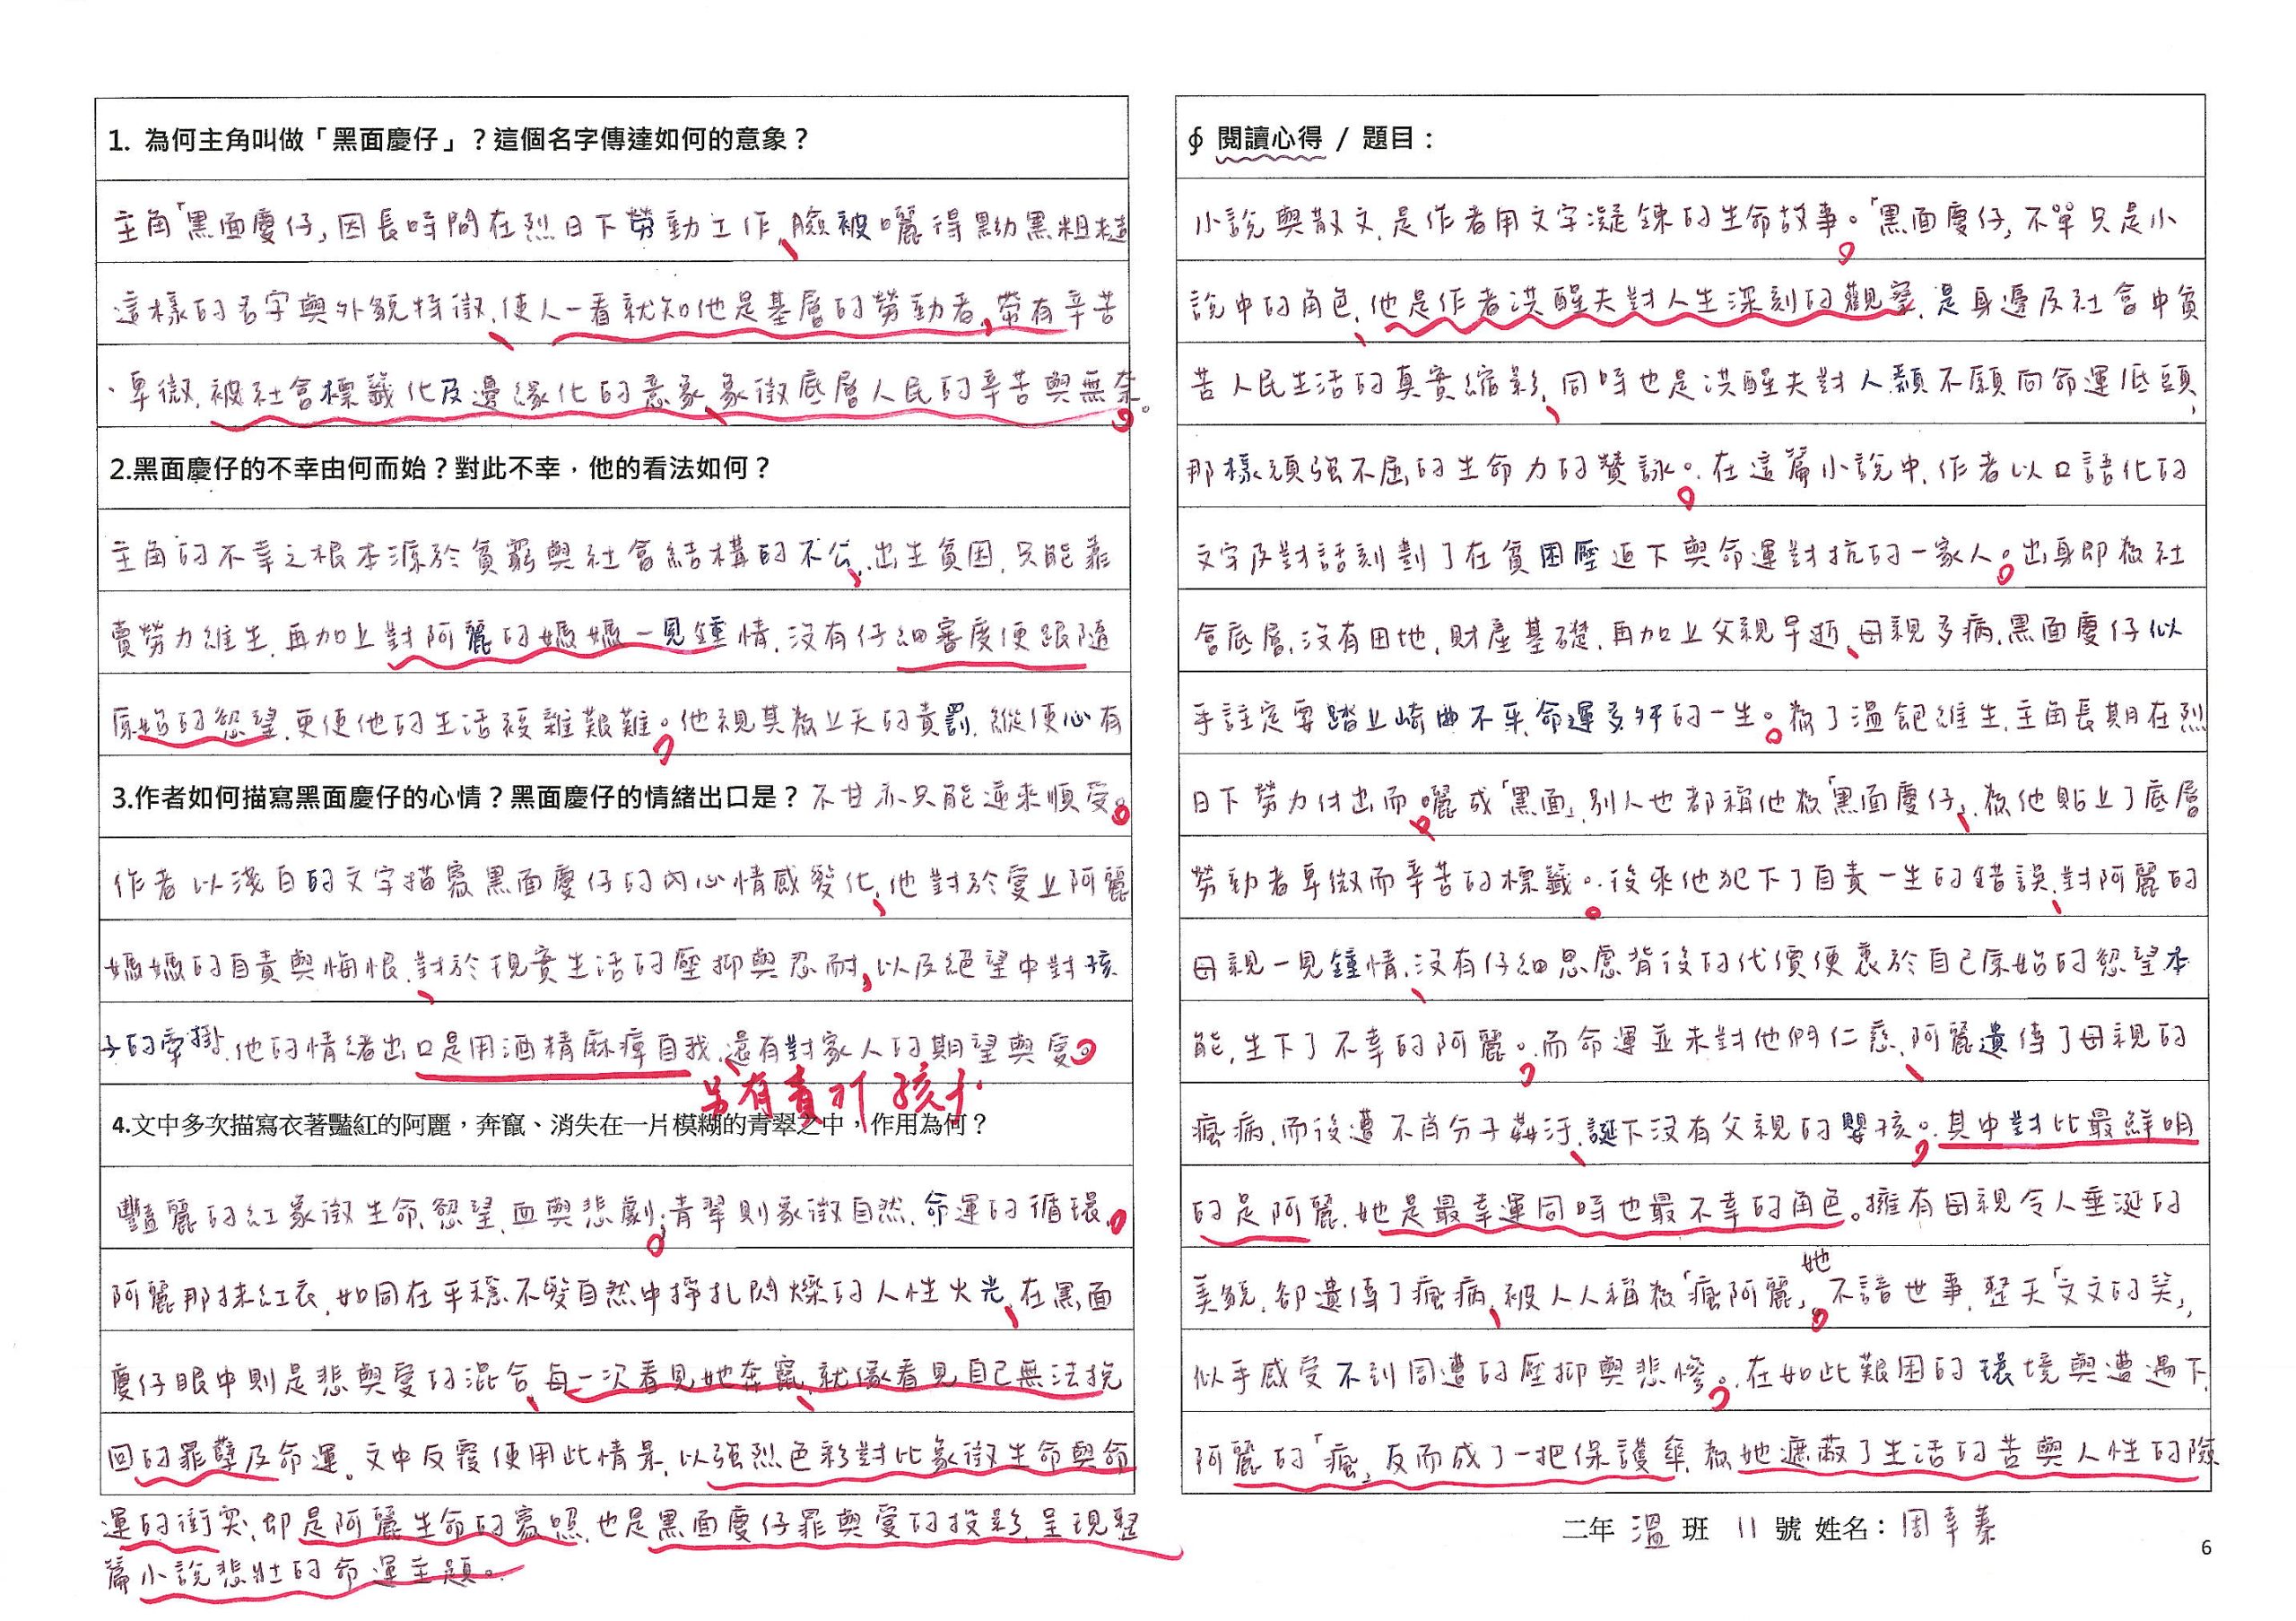 1. 為何主角叫做「黑面慶仔」？這個名字傳達如何的意象？
主角「黑面慶仔」因長時間在烈日下勞動工作、臉被曬得黝黑粗糙
這樣的名字與外貌特徵、使人一看就知他是基層的勞動者，帶有辛苦
、卑微，被社會標籤化及邊緣化的意象、象徵底層人民的辛苦與無奈。
2.黑面慶仔的不幸由何而始？對此不幸，他的看法如何？
主角的不幸之根本源於貧窮與社會結構的不公、出生貧困，只能靠
賣勞力維生，再加上對阿麗的媽媽一見鍾情，沒有仔細審度便跟隨
原始的慾望，更使他的生活複雜艱難。他視其為上天的責罰，縱使心有
3.作者如何描寫黑面慶仔的心情？黑面慶仔的情緒出口是？不甘亦只能逆來順受。
作者以淺白的文字描寫黑面慶仔的內心情感變化、他對於愛上阿麗
媽媽的自責與悔恨、對於現實生活的壓抑與忍耐，以及絕望中對孩
子的牽掛，他的情緒出口是用酒精麻痺自我、還有對家人的期望與愛。
另有責打孩子
4.文中多次描寫衣著豔紅的阿麗，奔竄、消失在一片模糊的青翠之中，作用為何？
豔麗的紅象徵生命、慾望、血與悲劇；青翠則象徵自然、命運的循環。
阿麗那抹紅衣，如同在平穩不變自然中掙扎閃爍的人性火光、在黑面
慶仔眼中則是悲與愛的混合、每一次看見她奔竄、就像看見自己無法挽
回的罪孽及命運。文中反覆使用此情景，以強烈色彩對比象徵生命與命
運的衝突，即是阿麗生命的寫照，也是黑面慶仔罪與愛的投影，呈現整
篇小說悲壯的命運主題。
∮ 閱讀心得 / 題目：
小說與散文，是作者用文字凝鍊的生命故事。「黑面慶仔」不單只是小
說中的角色、他是作者洪醒夫對人生深刻的觀察，是身邊及社會中貧
苦人民生活的真實縮影、同時也是洪醒夫對人類不願向命運低頭，
那樣頑強不屈的生命力的贊詠。在這篇小說中，作者以口語化的
文字及對話刻劃了在貧困壓迫下與命運對抗的一家人。出身即為社
會底層，沒有田地，財產基礎，再加上父親早逝、母親多病，黑面慶仔似
乎註定要踏上崎曲不平，命運多舛的一生。為了溫飽維生，主角長期在烈
日下勞力付出而曬成「黑面」，別人也都稱他為「黑面慶仔」、為他貼上了底層
勞動者卑微而辛苦的標籤。後來他犯下了自責一生的錯誤、對阿麗的
母親一見鍾情、沒有仔細思慮背後的代價便衷於自己原始的慾望本
能，生下了不幸的阿麗。而命運並未對他們仁慈、阿麗遺傳了母親的
瘋病，而後遭不肖分子姦污、誕下沒有父親的嬰孩。其中對比最鮮明
的是阿麗，她是最幸運同時也最不幸的角色。擁有母親令人垂涎的
美貌，卻遺傳了瘋病、被人人稱為「瘋阿麗」。她不諳世事，整天「文文的笑」，
似乎感受不到周遭的壓抑與悲慘。在如此艱困的環境與遭遇下，
阿麗的「瘋」反而成了一把保護傘，為她遮蔽了生活的苦與人性的險
二年 溫 班 11 號 姓名：周幸蓁
6